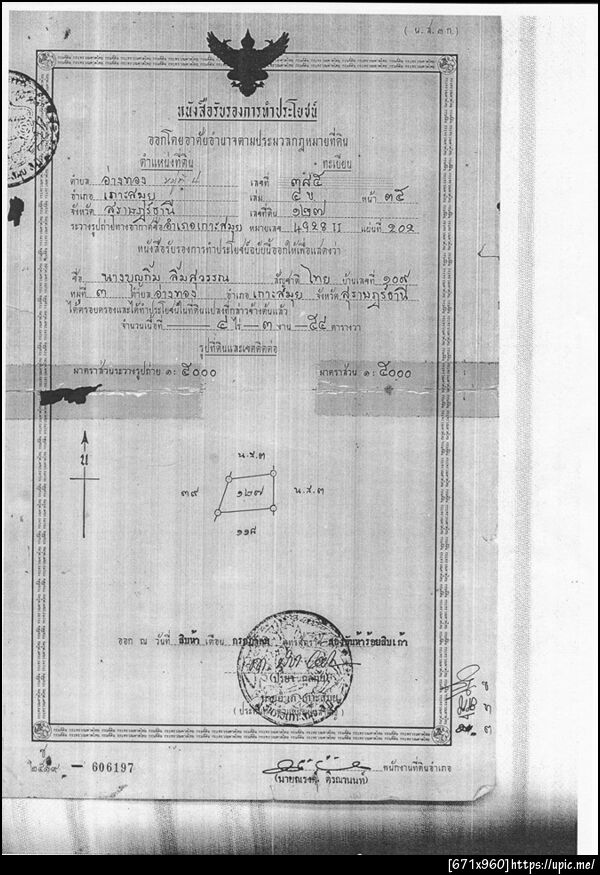 ( น. ส. ๓ ก. )
หนังสือรับรองการทำประโยชน์
ออกโดยอาศัยอำนาจตามประมวลกฎหมายที่ดิน
ตำแหน่งที่ดิน ทะเบียน
ตำบล อ่างทอง เลขที่ ๓๘๕
อำเภอ เกาะสมุย เล่ม ๔ ข หน้า ๓๕
จังหวัด สุราษฎร์ธานี เลขที่ดิน ๑๒๗
ระวางรูปถ่ายทางอากาศชื่อ อำเภอเกาะสมุย หมายเลข 4928 II แผ่นที่ 202
หนังสือรับรองการทำประโยชน์ฉบับนี้ออกให้เพื่อแสดงว่า
ชื่อ นางบุญกิ้ม ลิ้มสุวรรณ สัญชาติ ไทย บ้านเลขที่ ๑๐๙
หมู่ที่ ๓ ตำบล อ่างทอง อำเภอ เกาะสมุย จังหวัด สุราษฎร์ธานี
ได้ครอบครองและได้ทำประโยชน์ในที่ดินแปลงที่กล่าวข้างต้นแล้ว
จำนวนเนื้อที่ ๔ ไร่ ๓ งาน ๕๔ ตารางวา
รูปที่ดินและเขตติดต่อ
มาตราส่วนระวางรูปถ่าย ๑: ๕๐๐๐ มาตราส่วน ๑: ๕๐๐๐
น
น.ส.๓
๓๙ ๑๒๗ น.ส.๓
๑๑๘
ออก ณ วันที่ สิบห้า เดือน กรกฎาคม พุทธศักราช สองพันห้าร้อยสิบเก้า
ช
๓
๓
ช
๒๕๑๙ - 606197
พนักงานที่ดินอำเภอ
[671x960]https://upic.me/